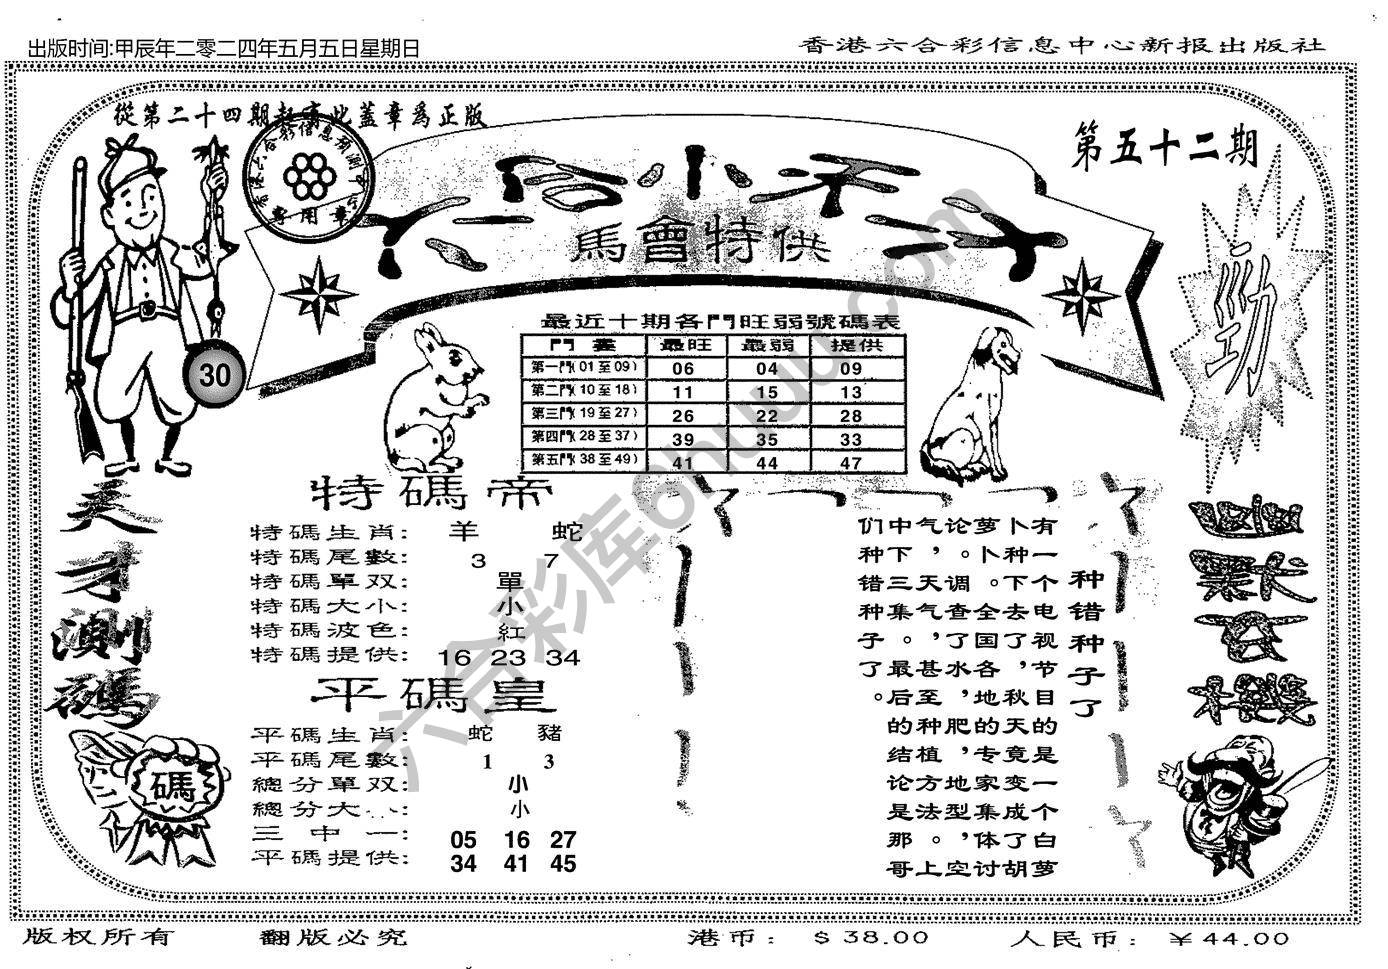 出版时间:甲辰年二零二四年五月五日星期日
香港六合彩信息中心新报出版社
從第二十四期起蓋此蓋章爲正版
第五十二期
六合小子
馬會特供
勁
專用章
30
最近十期各門旺弱號碼表
門 最旺 最弱 提供
第一門(01至09) 06 04 09
第二門(10至18) 11 15 13
第三門(19至27) 26 22 28
第四門(28至37) 39 35 33
第五門(38至49) 41 44 47
天才測碼
碼
特碼帝
特碼生肖: 羊 蛇
特碼尾數: 3 7
特碼單双: 單
特碼大小: 小
特碼波色: 紅
特碼提供: 16 23 34
平碼皇
平碼生肖: 蛇 豬
平碼尾數: 1 3
總分單双: 小
總分大 小
三中一: 05 16 27
平碼提供: 34 41 45
种错种子了
有一个电视节目的是一个白萝
卜种下去了，秋天竟变成了胡
萝卜。全国各地的专家集体讨
论。调查了水，地肥，地型，空
气，天气，甚至种植方法。上
中下三集。最后的结论是那哥
们种错种子了。
六合彩库6huuu.com
版权所有
翻版必究
港币: $38.00
人民币: ￥44.00